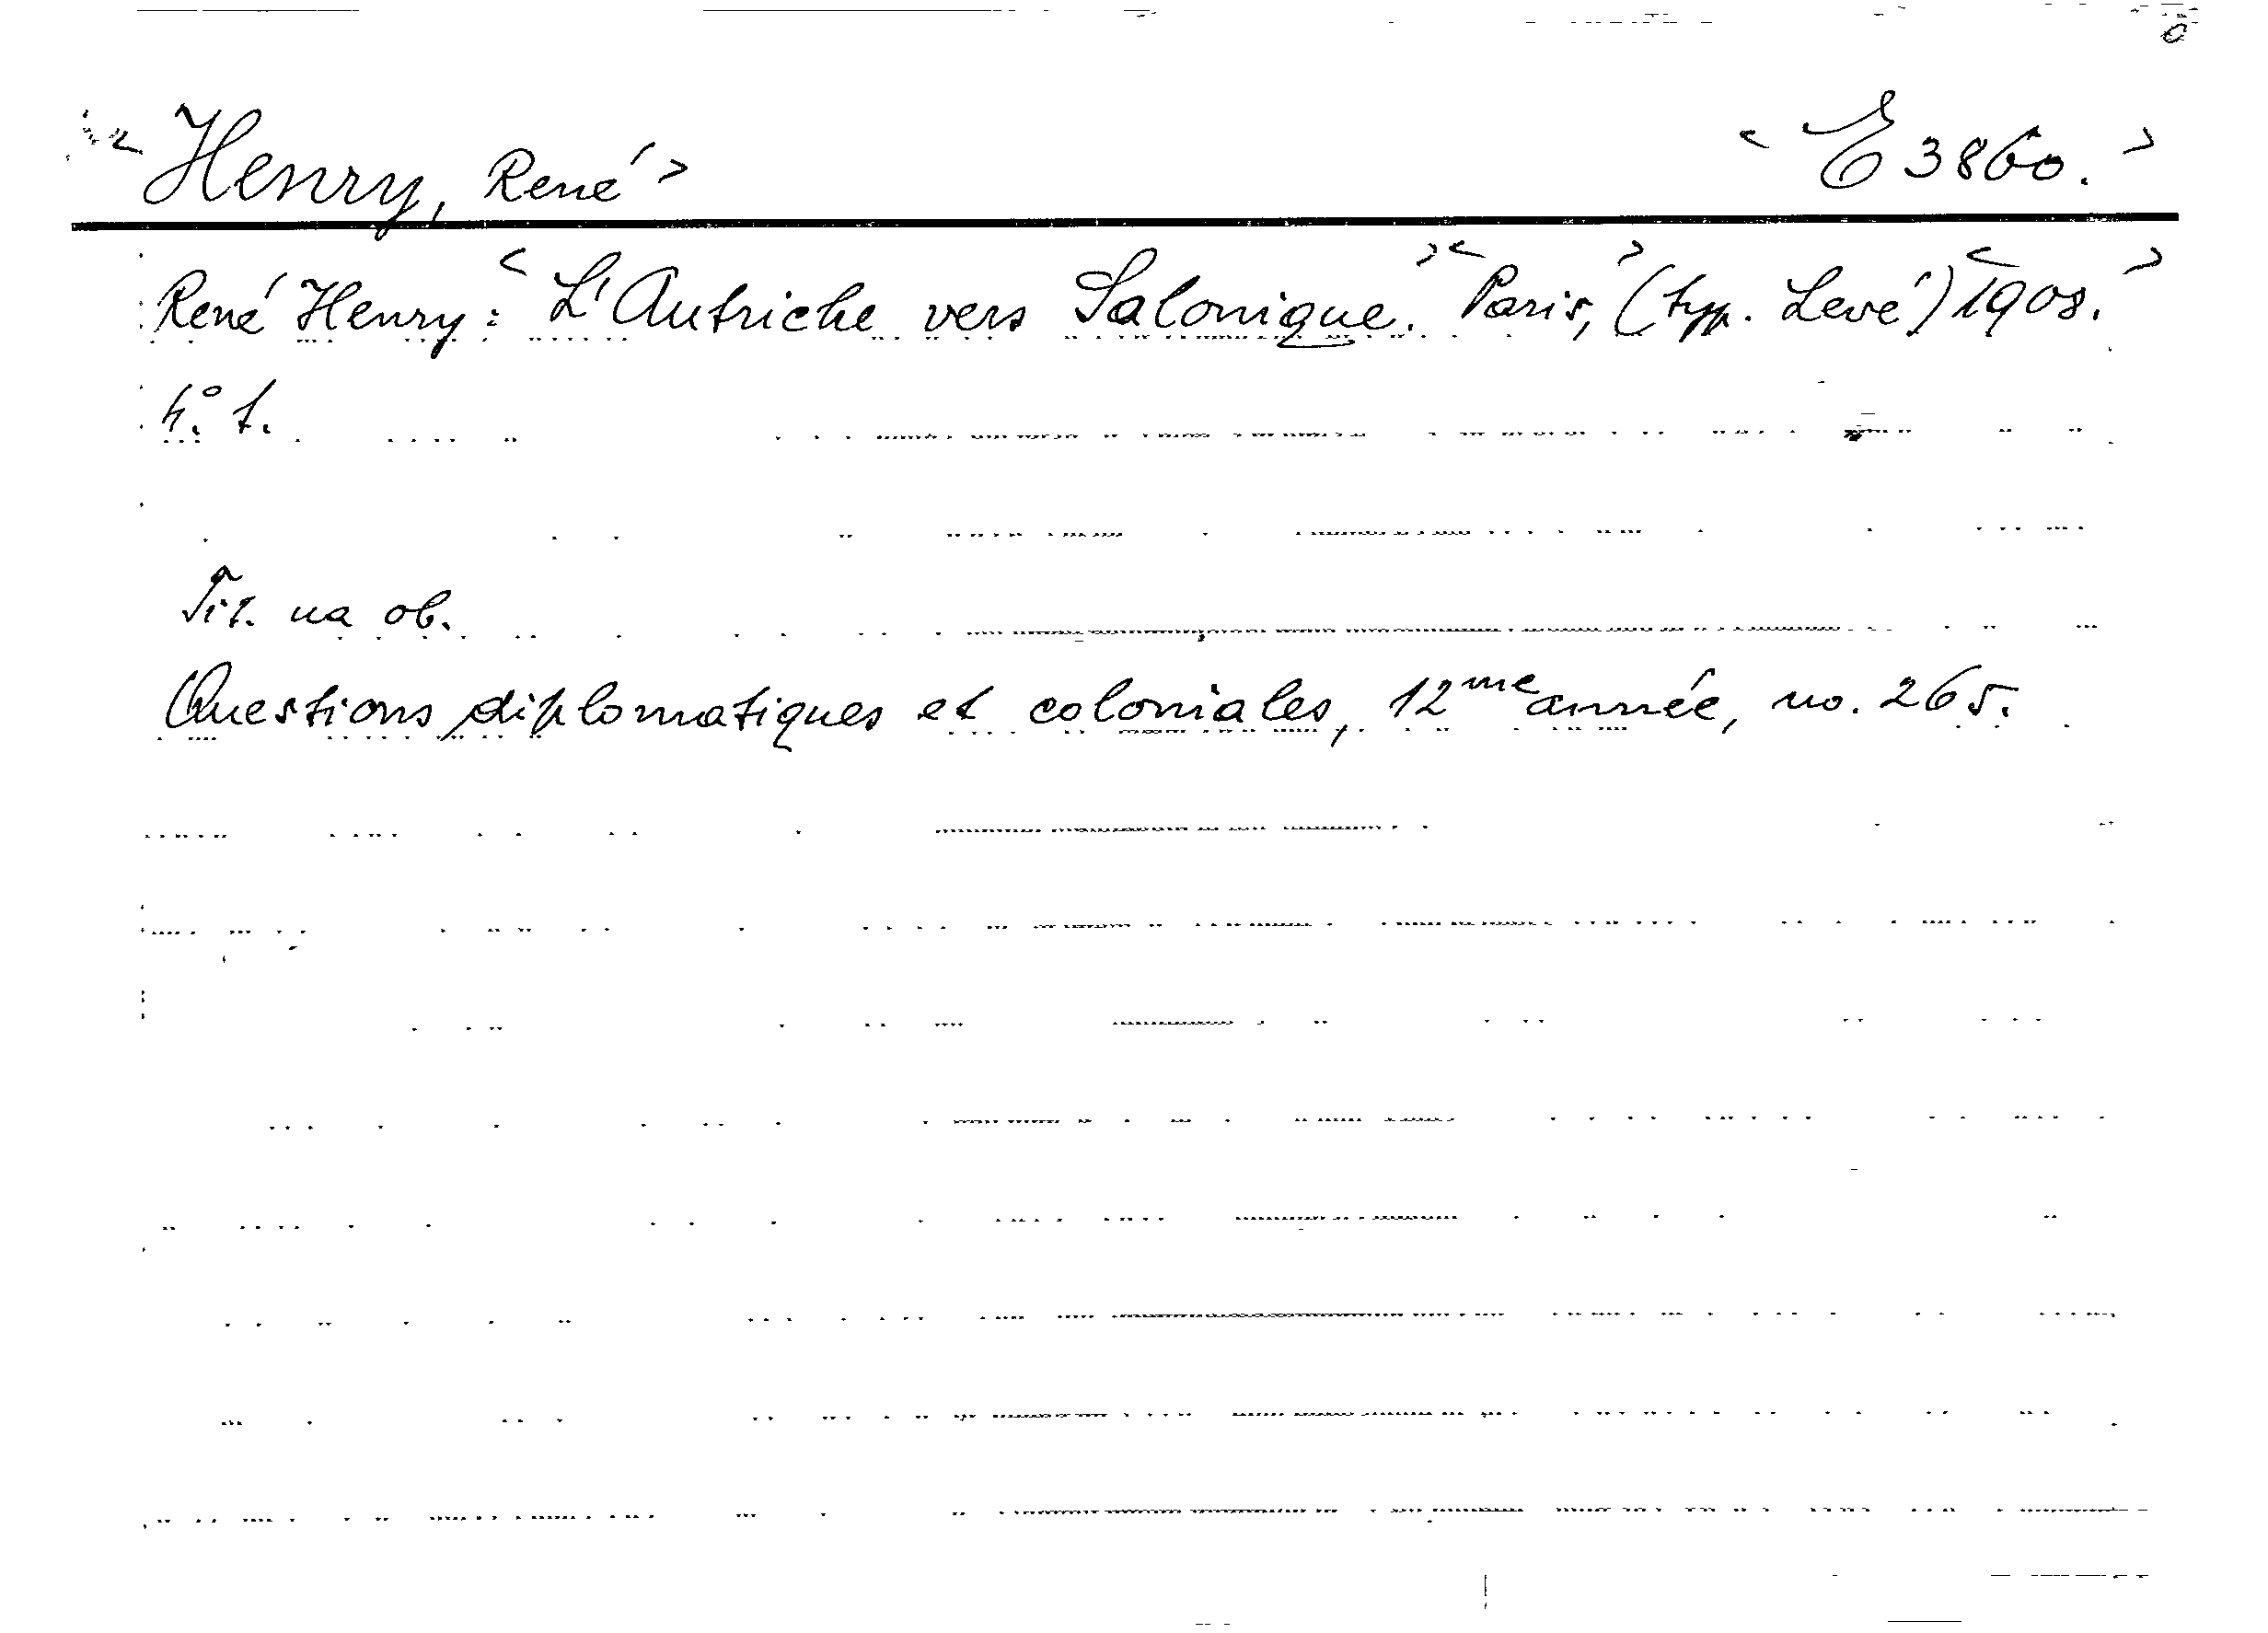 < Henry, René > < E 3860. >
René Henry: < L'Autriche vers Salonique. > < Paris, > (typ. Levé) < 1908. >
4.° 1.
Tit. na ob.
Questions diplomatiques et coloniales, 12me année, no. 265.